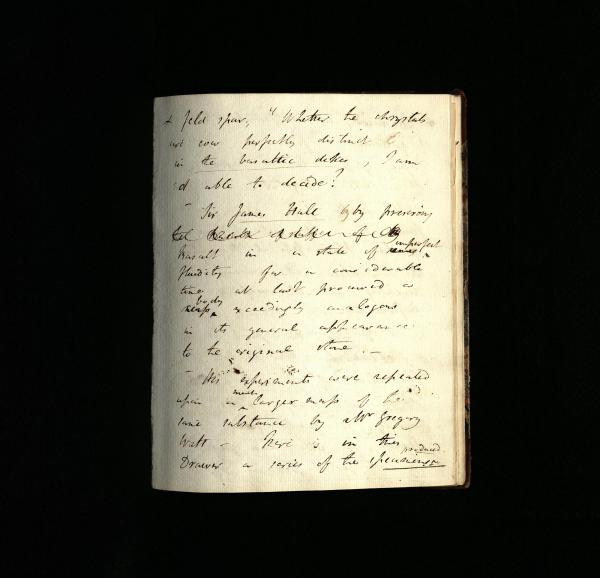 & feld spar, " Whether the chrystals
are ever perfectly distinct
in the basaltic dikes, I am
not able to decide?
Sir James Hall by preserving
basalt in a state of imperfect
fluidity for a considerable
time at last procured a
body exceedingly analogous
in its general appearance
to the original stone. –
– His experiments were repeated
upon a much larger mass of the
same substance by Mr Gregory
Watt – There is in this
Drawer a series of the specimens produced